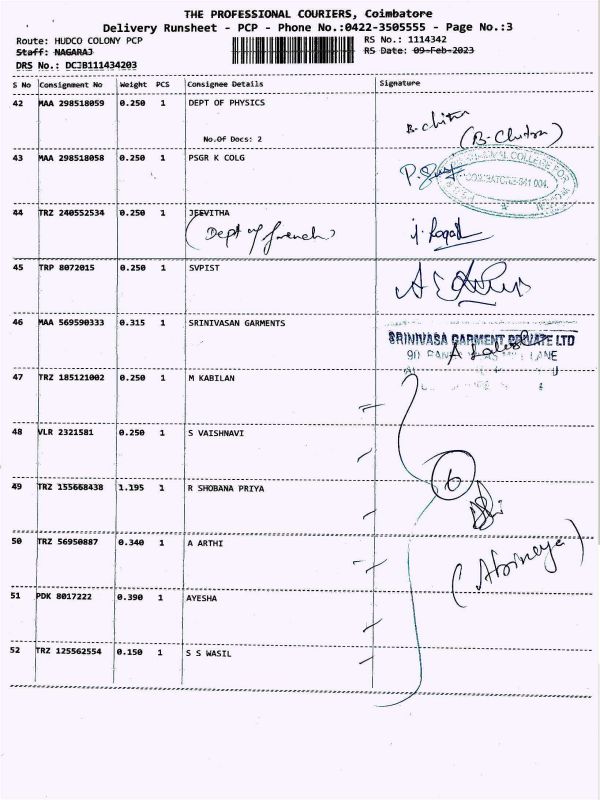 THE PROFESSIONAL COURIERS, Coimbatore
Delivery Runsheet - PCP - Phone No.:0422-3505555 - Page No.:3
Route: HUDCO COLONY PCP RS No.: 1114342
Staff: NAGARAJ RS Date: 09-Feb-2023
DRS No.: DCJB111434203
S No Consignment No Weight PCS Consignee Details Signature
42 MAA 298518059 0.250 1 DEPT OF PHYSICS
No.Of Docs: 2
B. Chitra
(B. Chitra)
43 MAA 298518058 0.250 1 PSGR K COLG
COLLEGE FOR
COIMBATORE-641 004.
44 TRZ 240552534 0.250 1 JEEVITHA
(Dept of french)
45 TRP 8072015 0.250 1 SVPIST
46 MAA 569590333 0.315 1 SRINIVASAN GARMENTS
SRINIVASA GARMENT PRIVATE LTD
LANE
47 TRZ 185121002 0.250 1 M KABILAN
48 VLR 2321581 0.250 1 S VAISHNAVI
49 TRZ 155668438 1.195 1 R SHOBANA PRIYA
6
50 TRZ 56950887 0.340 1 A ARTHI
(Abinaya)
51 PDK 8017222 0.390 1 AYESHA
52 TRZ 125562554 0.150 1 S S WASIL